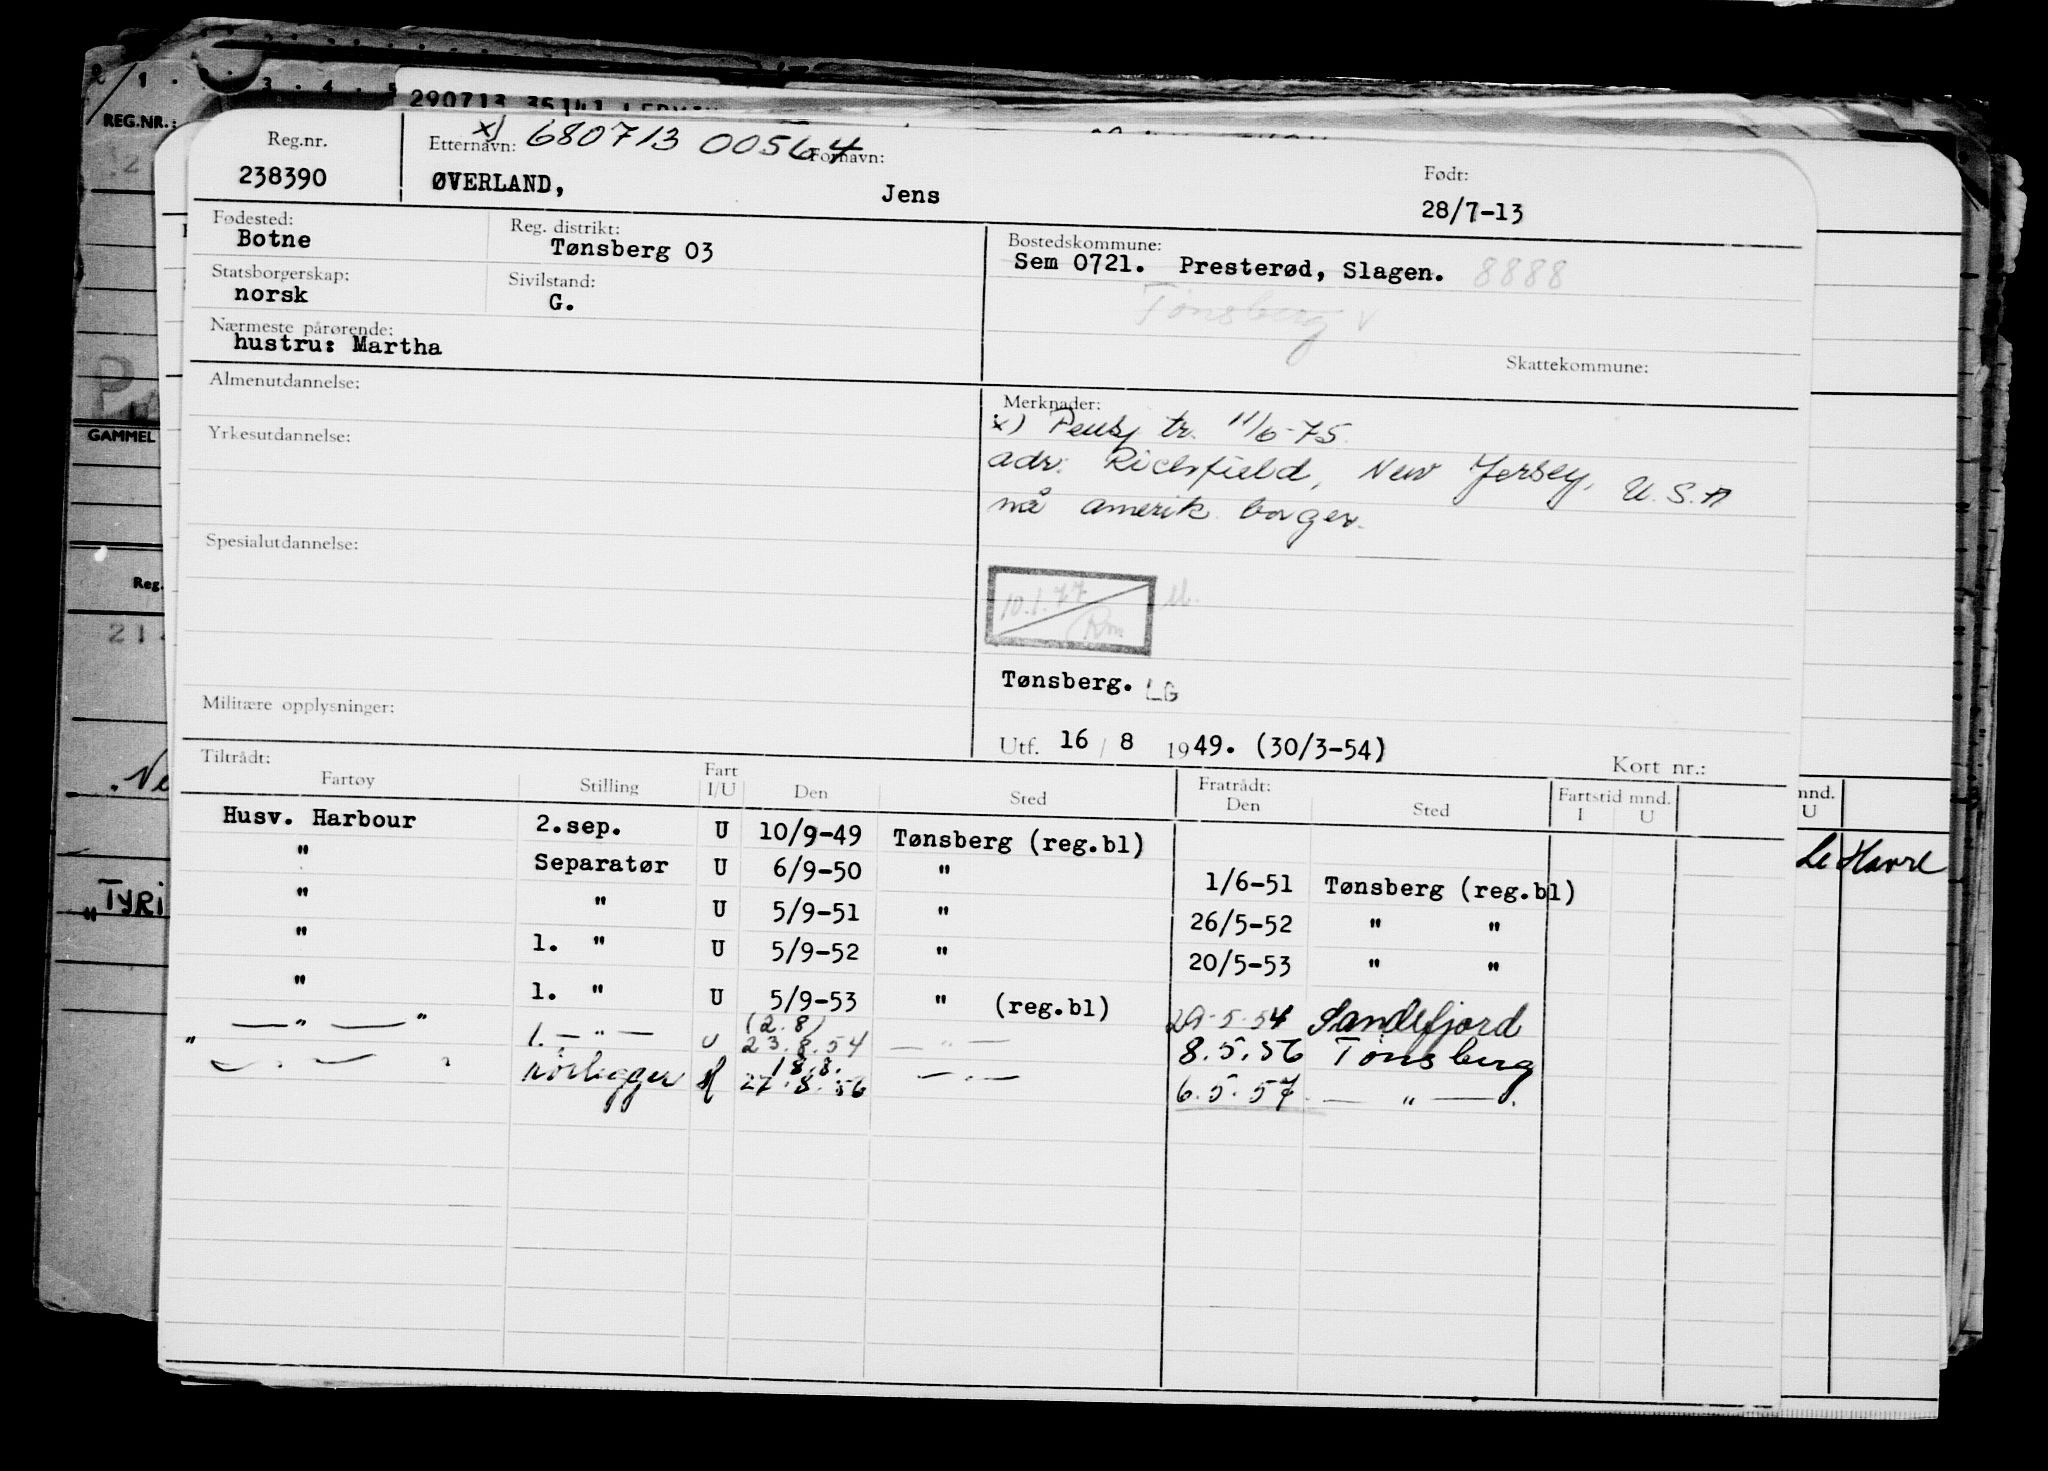 2/1 . . . 3 . 4 . 5
290713 35141
REG.NR.:
GAMMEL
Reg.
TYRI
Reg.nr.
238390
Etternavn: x) 680713 00564 Fornavn:
ØVERLAND, Jens
Født:
28/7-13
Fødested:
Botne
Reg. distrikt:
Tønsberg 03
Bostedskommune:
Sem 0721. Presterød, Slagen. 8888
Tønsberg V
Statsborgerskap:
norsk
Sivilstand:
G.
Nærmeste pårørende:
hustru: Martha
Skattekommune:
Almenutdannelse:
Yrkesutdannelse:
Spesialutdannelse:
Militære opplysninger:
Merknader:
x) Pensj tr. 11/6-75.
adr. Richfield, New Jersey, U.S.A
nå amerik. borger.
10.1.77
Rm
Tønsberg. LG
Utf. 16 / 8 1949. (30/3-54)
Kort nr.:
Tiltrådt:
Fartøy Stilling Fart I/U Den Sted Fratrådt: Den Sted Fartstid mnd. I U
mnd. U
Husv. Harbour 2.sep. U 10/9-49 Tønsberg (reg.bl)
" Separatør U 6/9-50 " 1/6-51 Tønsberg (reg.bl)
" " U 5/9-51 " 26/5-52 " "
" 1. " U 5/9-52 " 20/5-53 " "
" 1. " U 5/9-53 " (reg.bl) 29.5.54 Sandefjord
— " — " 1. — " — U (2.8) 23.8.54 — " — 8.5.56 Tønsberg
" — . — " rørlegger 18.8. 27.8.56 — " — 6.5.57. — " —.
Le Havre